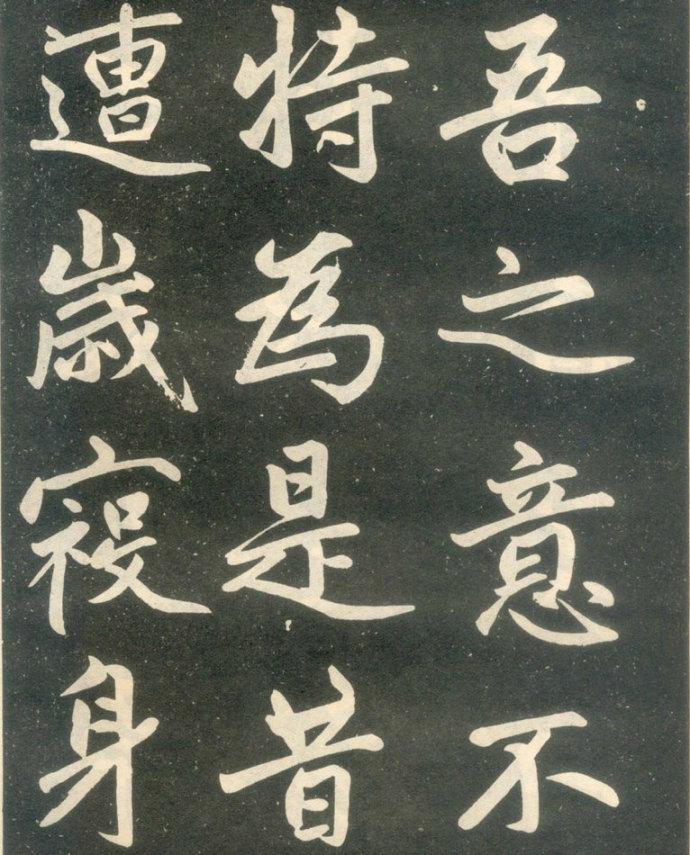 吾之意不
特為是昔
遭歲祲身